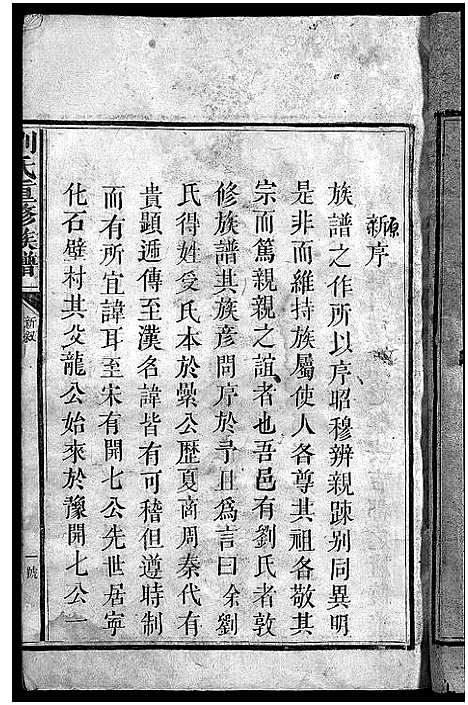 原新序
族譜之作所以序昭穆辨親踈别同異明
是非而維持族屬使人各尊其祖各敬其
宗而篤親親之誼者也吾邑有劉氏者敦
修族譜其族彦問序於予且爲言曰余劉
氏得姓受氏本於纍公歴夏商周秦代有
貴顯遞傳至漢名諱皆有可稽但遵時制
而有所宜諱耳至宋有開七公先世居寧
化石壁村其父龍公始來於豫開七公一
劉氏重修族譜
新叙
一號